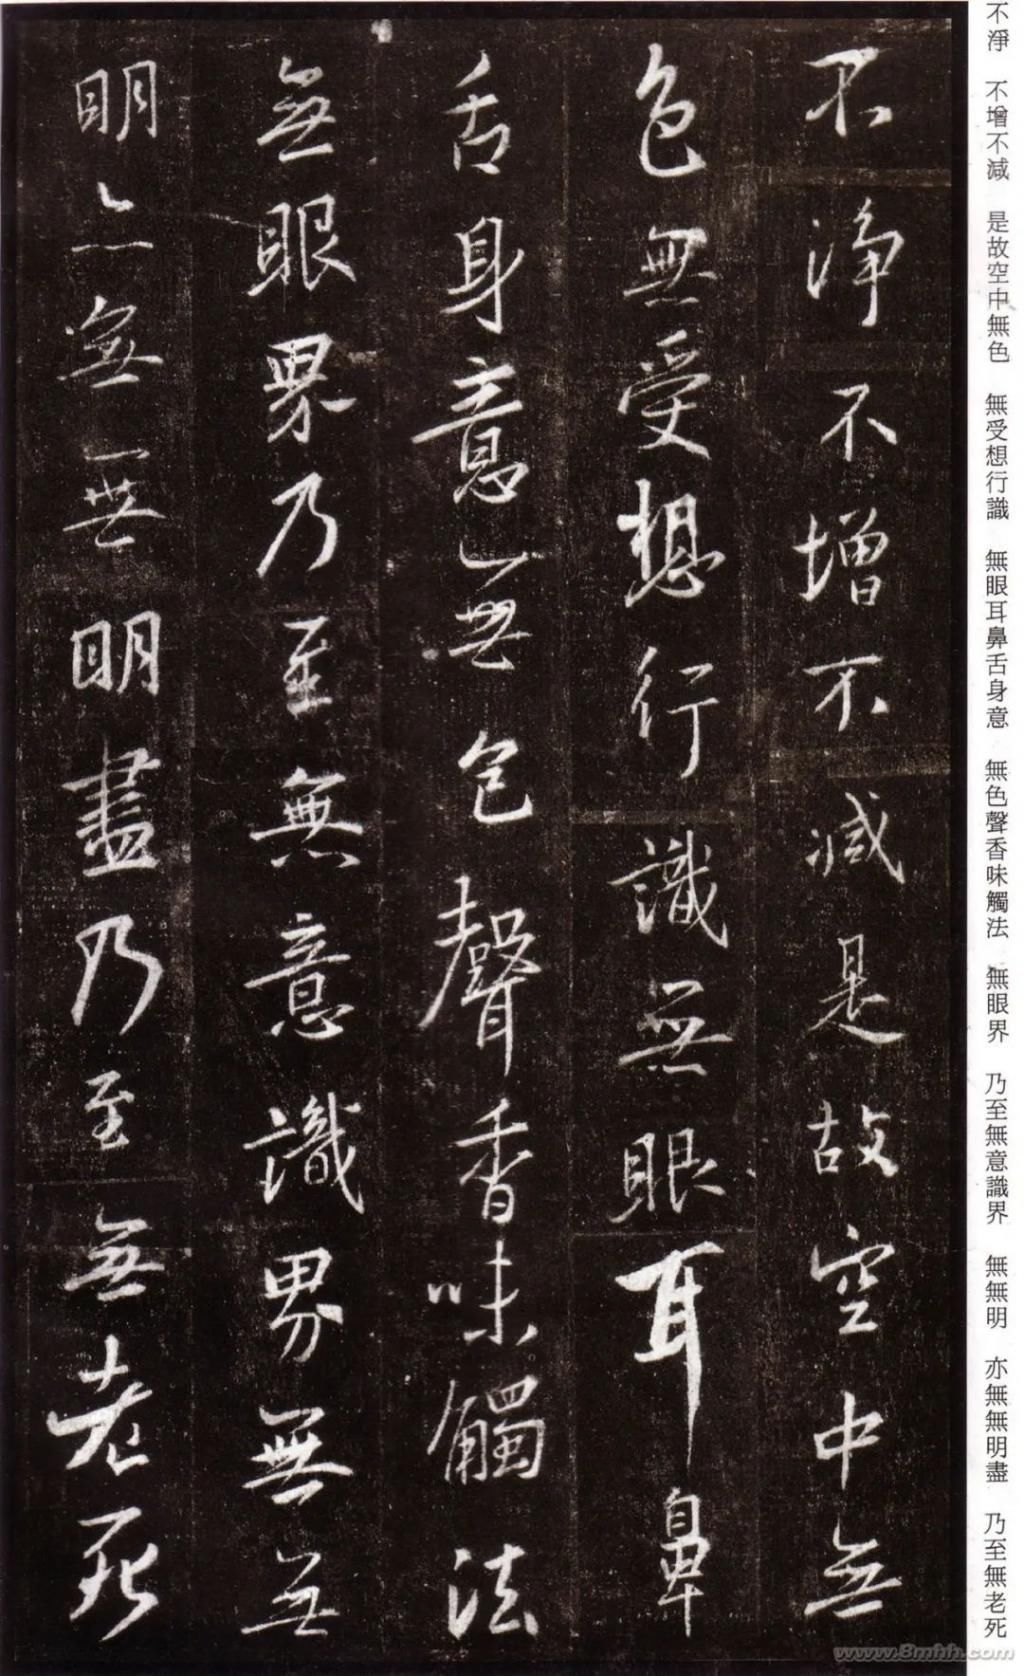 不淨 不增不減 是故空中無色 無受想行識 無眼耳鼻舌身意 無色聲香味觸法 無眼界 乃至無意識界 無無明 亦無無明盡 乃至無老死
不淨不增不減是故空中無
色無受想行識無眼耳鼻
舌身意無色聲香味觸法
無眼界乃至無意識界無無
明亦無無明盡乃至無老死
www.8mhh.com